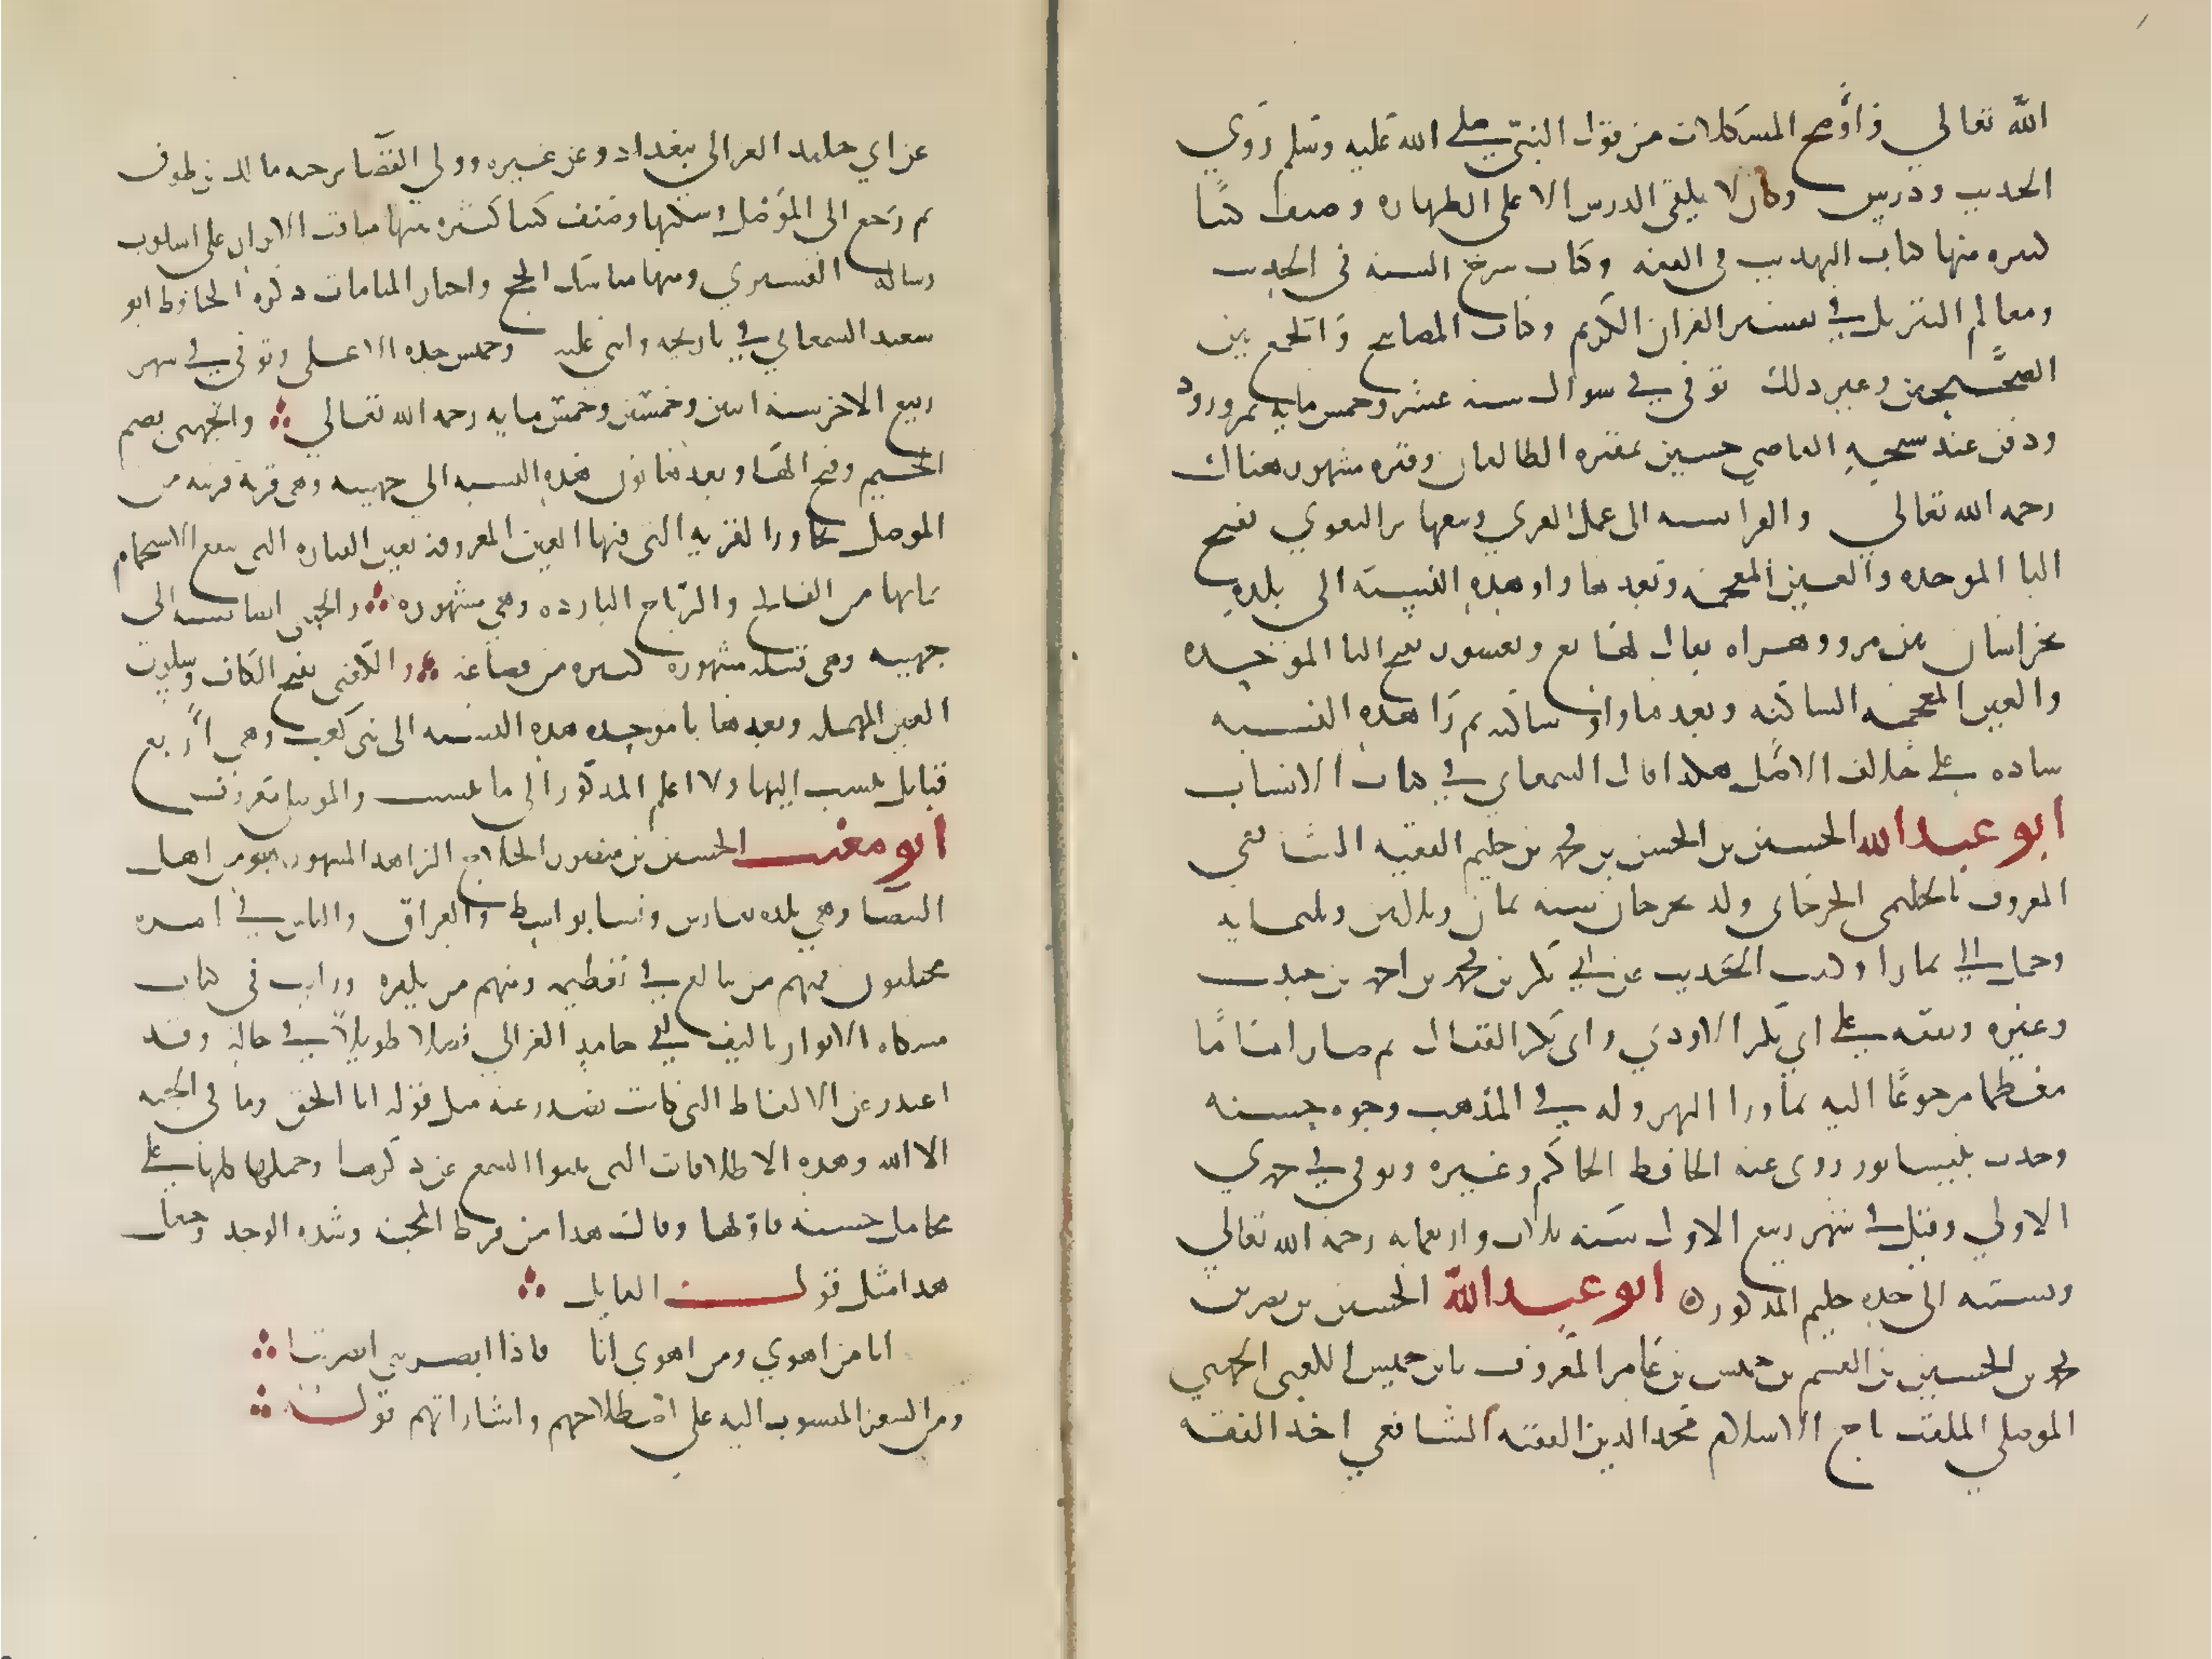 الله تعالى واوضح المشكلات من قول النبي صلى الله عليه وسلم وروي
الحديث ودرس وكان لا يلقي الدرس الا على الطهاره وصنف كتبا
كثيره منها كتاب التهذيب في الفقه وكتاب شرح السنه في الحديث
ومعالم التنزيل في تفسير القران الكريم وكتاب المصابيح والجمع بين
الصحيحين وغير ذلك توفي في شوال سنه عشر وخمس مايه بمروروذ
ودفن عند شيخه القاضي حسين بمقبره الطالقان وقبره مشهور هناك
رحمه الله تعالى والفرا نسبه الى عمل الفري وبيعها والبغوي بفتح
البا الموحده والغين المعجمه وبعدها واو هذه النسبه الى بلده
بخراسان بين مرو وهراه يقال لها بغ وبغشور بفتح البا الموحده
والغين المعجمه الساكنه وبعدها واو ساكنه ثم را هذه النسبه
شاذه على خلاف الاصل هكذا قال السمعاني في كتاب الانساب
ابو عبد الله الحسين بن الحسن بن محمد بن حليم الفقيه الشافعي
المعروف بالحليمي الجرجاني ولد بجرجان سنه ثمان وثلاثين وثلثمايه
وحمل الى بخارا وكتب الحديث عن ابي بكر بن محمد بن احمد بن حبيب
وغيره وتفقه على ابي بكر الاودني وابي بكر القفال ثم صار اماما
معظما مرجوعا اليه بماورا النهر وله في المذهب وجوه حسنه
وحدث بنيسابور روى عنه الحافظ الحاكم وغيره وتوفي في جمدي
الاولي وقيل في شهر ربيع الاول سنه ثلاث واربعمايه رحمه الله تعالي
ونسبته الى جده حليم المذكور ابو عبد الله الحسين بن نصر بن
محمد بن الحسين بن القسم بن خميس بن عامر المعروف بابن خميس الكعبي الجهني
الموصلي الملقب تاج الاسلام مجد الدين الفقيه الشافعي اخذ الفقه
عن ابي حامد الغزالي ببغداد وعن غيره وولي القضا برحبه مالك بن طوق
ثم رجع الى الموصل وسكنها وصنف كتبا كثيره منها مناقب الابرار على اسلوب
رساله القشيري ومنها مناسك الحج واخبار المنامات ذكره الحافظ ابو
سعيد السمعاني في تاريخه واثنى عليه وخميس جده الاعلى وتوفي في شهر
ربيع الاخر سنه اثنين وخمسين وخمس مايه رحمه الله تعالي والجهني بضم
الجيم وفتح الها وبعدها نون هذه النسبه الى جهينه وهي قريه قريبه من
الموصل تجاور القريه التي فيها العين المعروفه بعين القياره التي ينفع الاستحمام
بمايها من الفالج والرياح البارده وهي مشهوره والجهني ايضا نسبه الى
جهينه وهي قبيله مشهوره كبيره من قضاعه والكعبي بفتح الكاف وسكون
العين المهمله وبعدها با موحده هذه النسبه الى بني كعب وهي اربع
قبايل ينسب اليها ولا اعلم المذكور الى ايها ينسب والموصل معروف
ابو مغيث الحسين بن منصور الحلاج الزاهد المشهور هو من اهل
البيضا وهي بلده بفارس ونشا بواسط والعراق والناس في امره
مختلفون فمنهم من يبالغ في تعظيمه ومنهم من يكفره ورايت في كتاب
مشكاه الانوار تاليف ابي حامد الغزالي فصلا طويلا في حاله وقد
اعتذر عن الالفاظ التي كانت تصدر عنه مثل قوله انا الحق وما في الجبه
الا الله وهذه الاطلاقات التي ينبوا السمع عن ذكرها وحملها كلها على
محامل حسنه واولها وقال هذا من فرط المحبه وشده الوجد وجعل
هذا مثل قول القايل
انا من اهوي ومن اهوي انا فاذا ابصرتني ابصرتنا
ومن الشعر المنسوب اليه على اصطلاحهم واشاراتهم قوله